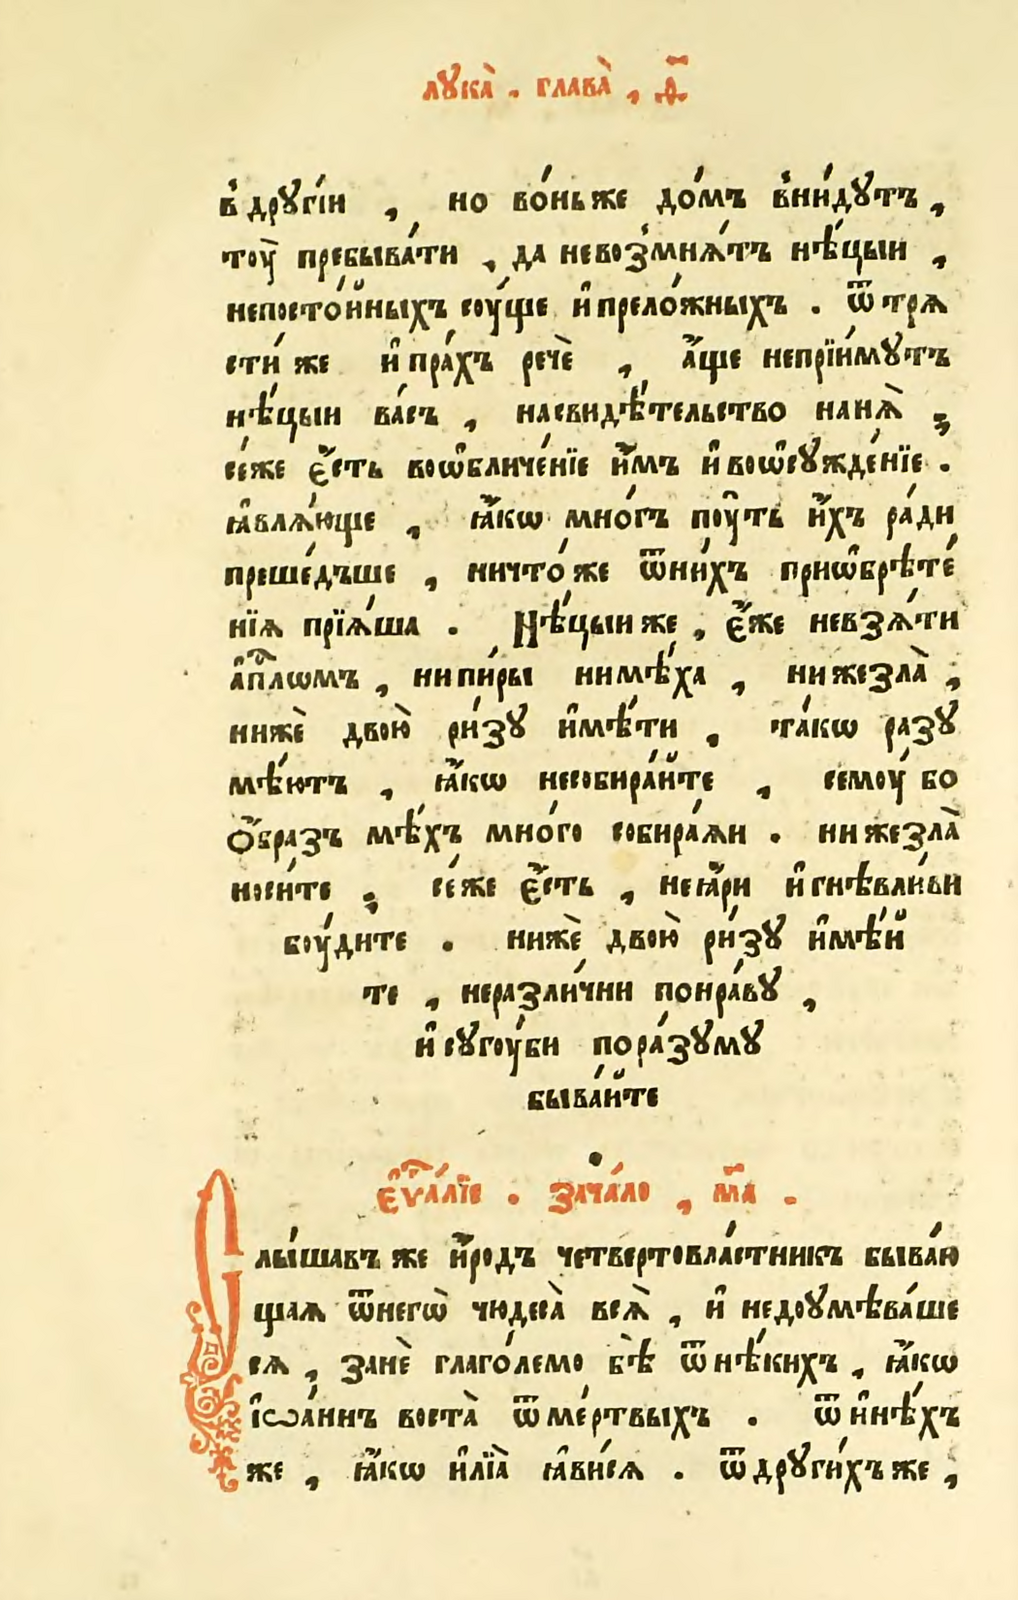 лꙋка̀ . глава̀ , ѳ҃
в̾ дрꙋгі́и , но во́ньже до́мъ в̾ни́дꙋтъ ,
тоу̀ пребыва́ти , да невоз̾мнѧ́тъ нѣ́цыи ,
непосто́йныхъ соу́ще и҆прело́жныхъ . ѿ трѧ
сти́ же и҆ пра́хъ речѐ , а҆́ще непрїи́мꙋтъ
нѣ́цыи ва́съ , насвидѣ́тельство нанѧ̀ ;
се́же є҆́сть воѡ҆бличе́нїе и҆́мъ и҆ воѡ҆сꙋжде́нїе .
ꙗ҆влѧ́юще , ꙗ҆́кѡ мно́гъ поу҆́ть и҆́хъ ра́ди
преше́дъше , ничто́же ѿни́хъ приѡ҆брѣте́
нїѧ прїѧ́ша . Нѣ́цыиже , є҆́же невзѧ́ти
а҆пⷭ҇лѡмъ , нипи́ры нимѣ́ха , ни жезла̀ ;
нижѐ двою̀ ри́зꙋ и҆мѣ́ти , та́кѡ разꙋ
мѣ́ютъ , ꙗ҆́кѡ несобира́йте , семоу́ бо
ѻ҆́бразъ мѣ́хъ мно́го собира́ѧи . ни жезла̀
носи́те ; се́же є҆́сть , неꙗ҆́ри и҆ гнѣвли́ви
боу́дите . нижѐ двою̀ ри́зꙋ и҆мѣ́й
те , неразли́чни понра́вꙋ ,
и҆ сꙋгоу́би пора́зꙋмꙋ
быва́йте
є҆ѵⷢ҇а́лїе . зача́ло , м҃а .
Слы́шавъ же и҆́родъ четвертовла́стникъ быва́ю
щаѧ ѿнегѡ̀ чюдеса̀ всѧ̀ , и҆ недоꙋмѣва́ше
сѧ , занѐ глаго́лемо бѣ̀ ѿ нѣ́кихъ , ꙗ҆́кѡ
і҆ѡа́ннъ воста̀ ѿ ме́ртвыхъ . ѿ и҆нѣ́хъ
же , ꙗ҆́кѡ и҆лїа̀ ꙗ҆ви́сѧ . ѿ дрꙋги́хъ же ,